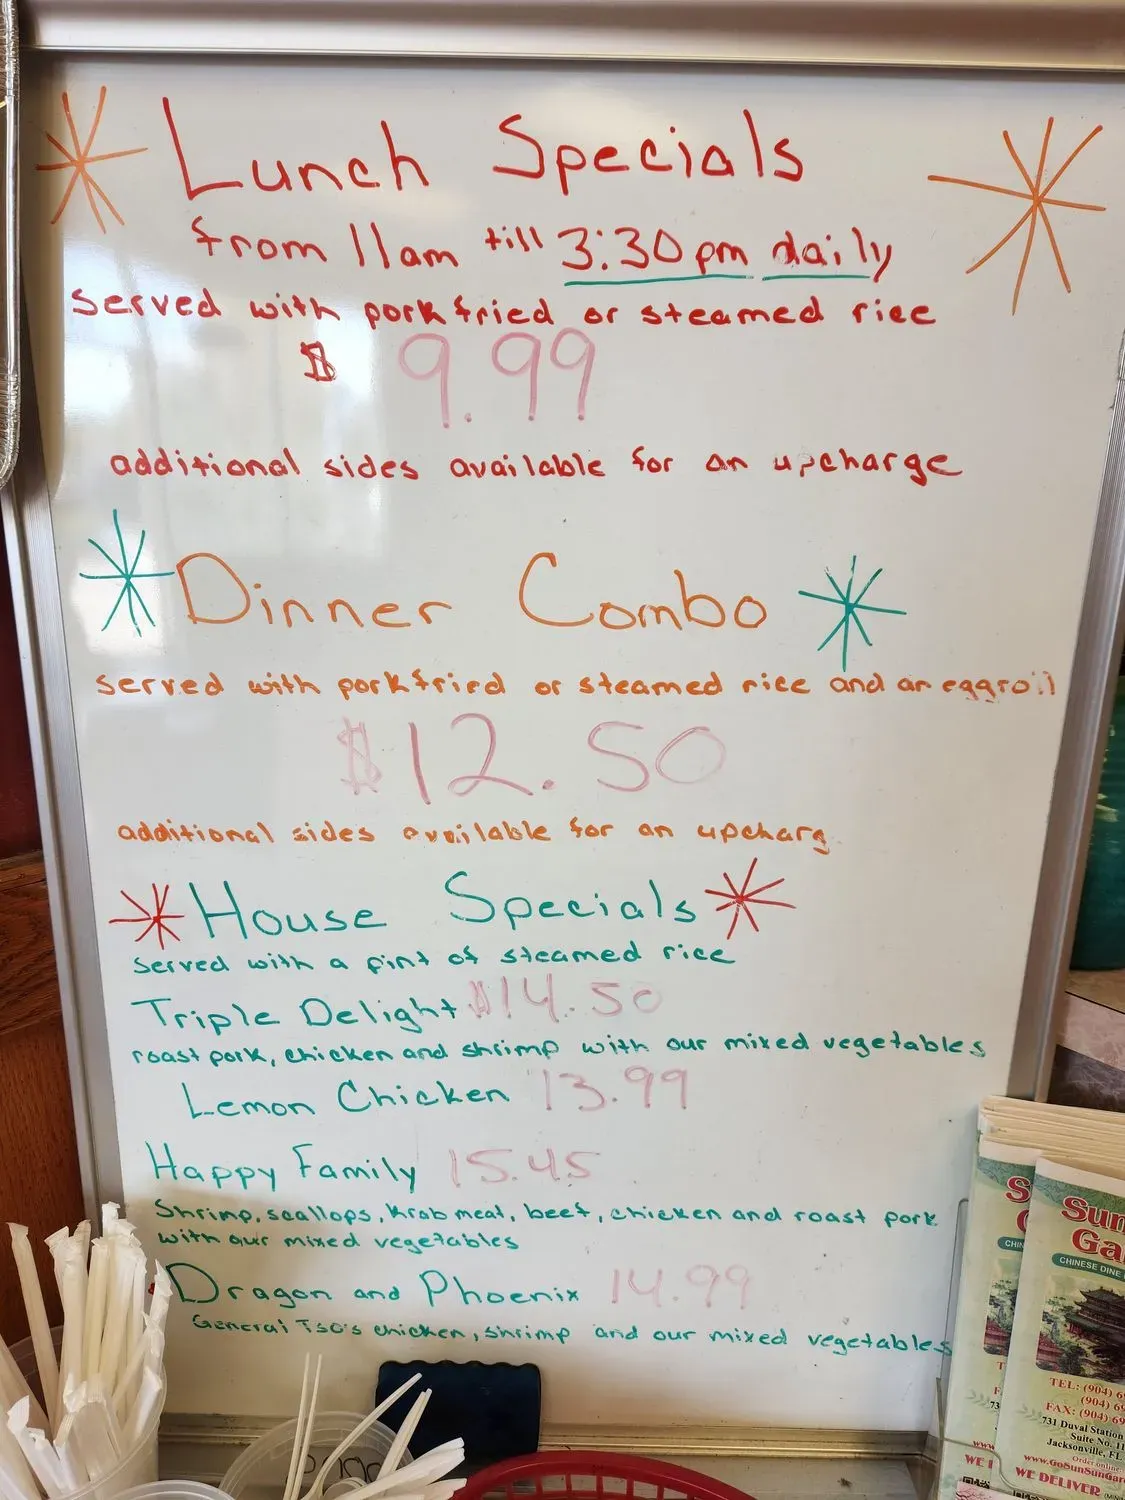 Lunch Specials
from 11am till 3:30pm daily
served with pork fried or steamed rice
$ 9.99
additional sides available for an upcharge
Dinner Combo
served with pork fried or steamed rice and an eggroll
$12.50
additional sides available for an upcharg
House Specials
served with a pint of steamed rice
Triple Delight $14.50
roast pork, chicken and shrimp with our mixed vegetables
Lemon Chicken 13.99
Happy Family 15.45
Shrimp, scallops, Krab meat, beef, chicken and roast pork
with our mixed vegetables
Dragon and Phoenix 14.99
General Tso's chicken, shrimp and our mixed vegetables
Sun
Ga
CHINESE DINE
TEL: (904) 6
(904) 6
FAX: (904) 69
731 Duval Station
Suite No. 11
Jacksonville, FL
Order online
www.GoSunSunGar
WE DELIVER